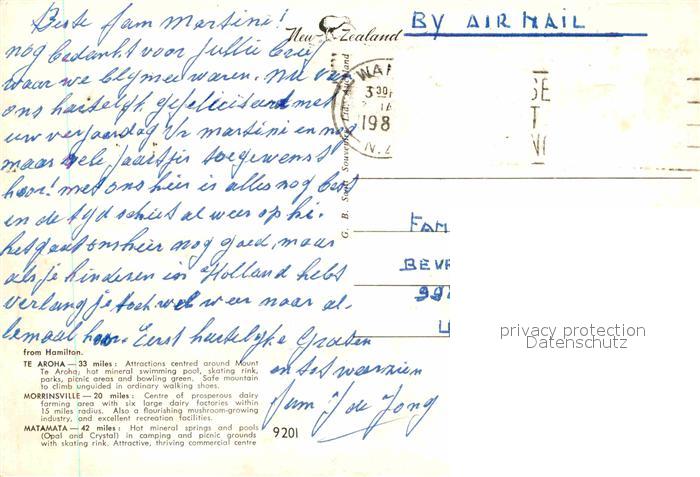 Beste Fam Martini!
nog bedankt voor jullie brief
waar we blij mee waren. Nu van
ons hartelijk gefeliciteerd met
uw verjaardag Mr martini en nog
maar vele jaartjes toegewenst
hoor! met ons hier is alles nog best
en de tijd schiet al weer op hé.
het gaat ons hier nog goed, maar
als je kinderen in Holland hebt
verlang je toch wel weer naar al-
lemaal hoor. Eerst hartelijke Groeten
en tot weerzien
Fam J de Jong
New Zealand
BY AIR MAIL
WA
3 30
198
N.Z
SE
T
G. B. Scott Souvenirs Ltd. Auckland
FAM
BEV
99
privacy protection
Datenschutz
from Hamilton.
TE AROHA — 33 miles: Attractions centred around Mount
Te Aroha; hot mineral swimming pool, skating rink,
parks, picnic areas and bowling green. Safe mountain
to climb unguided in ordinary walking shoes.
MORRINSVILLE — 20 miles: Centre of prosperous dairy
farming area with six large dairy factories within
15 miles radius. Also a flourishing mushroom-growing
industry, and excellent recreation facilities.
MATAMATA — 42 miles: Hot mineral springs and pools
(Opal and Crystal) in camping and picnic grounds
with skating rink. Attractive, thriving commercial centre
9201